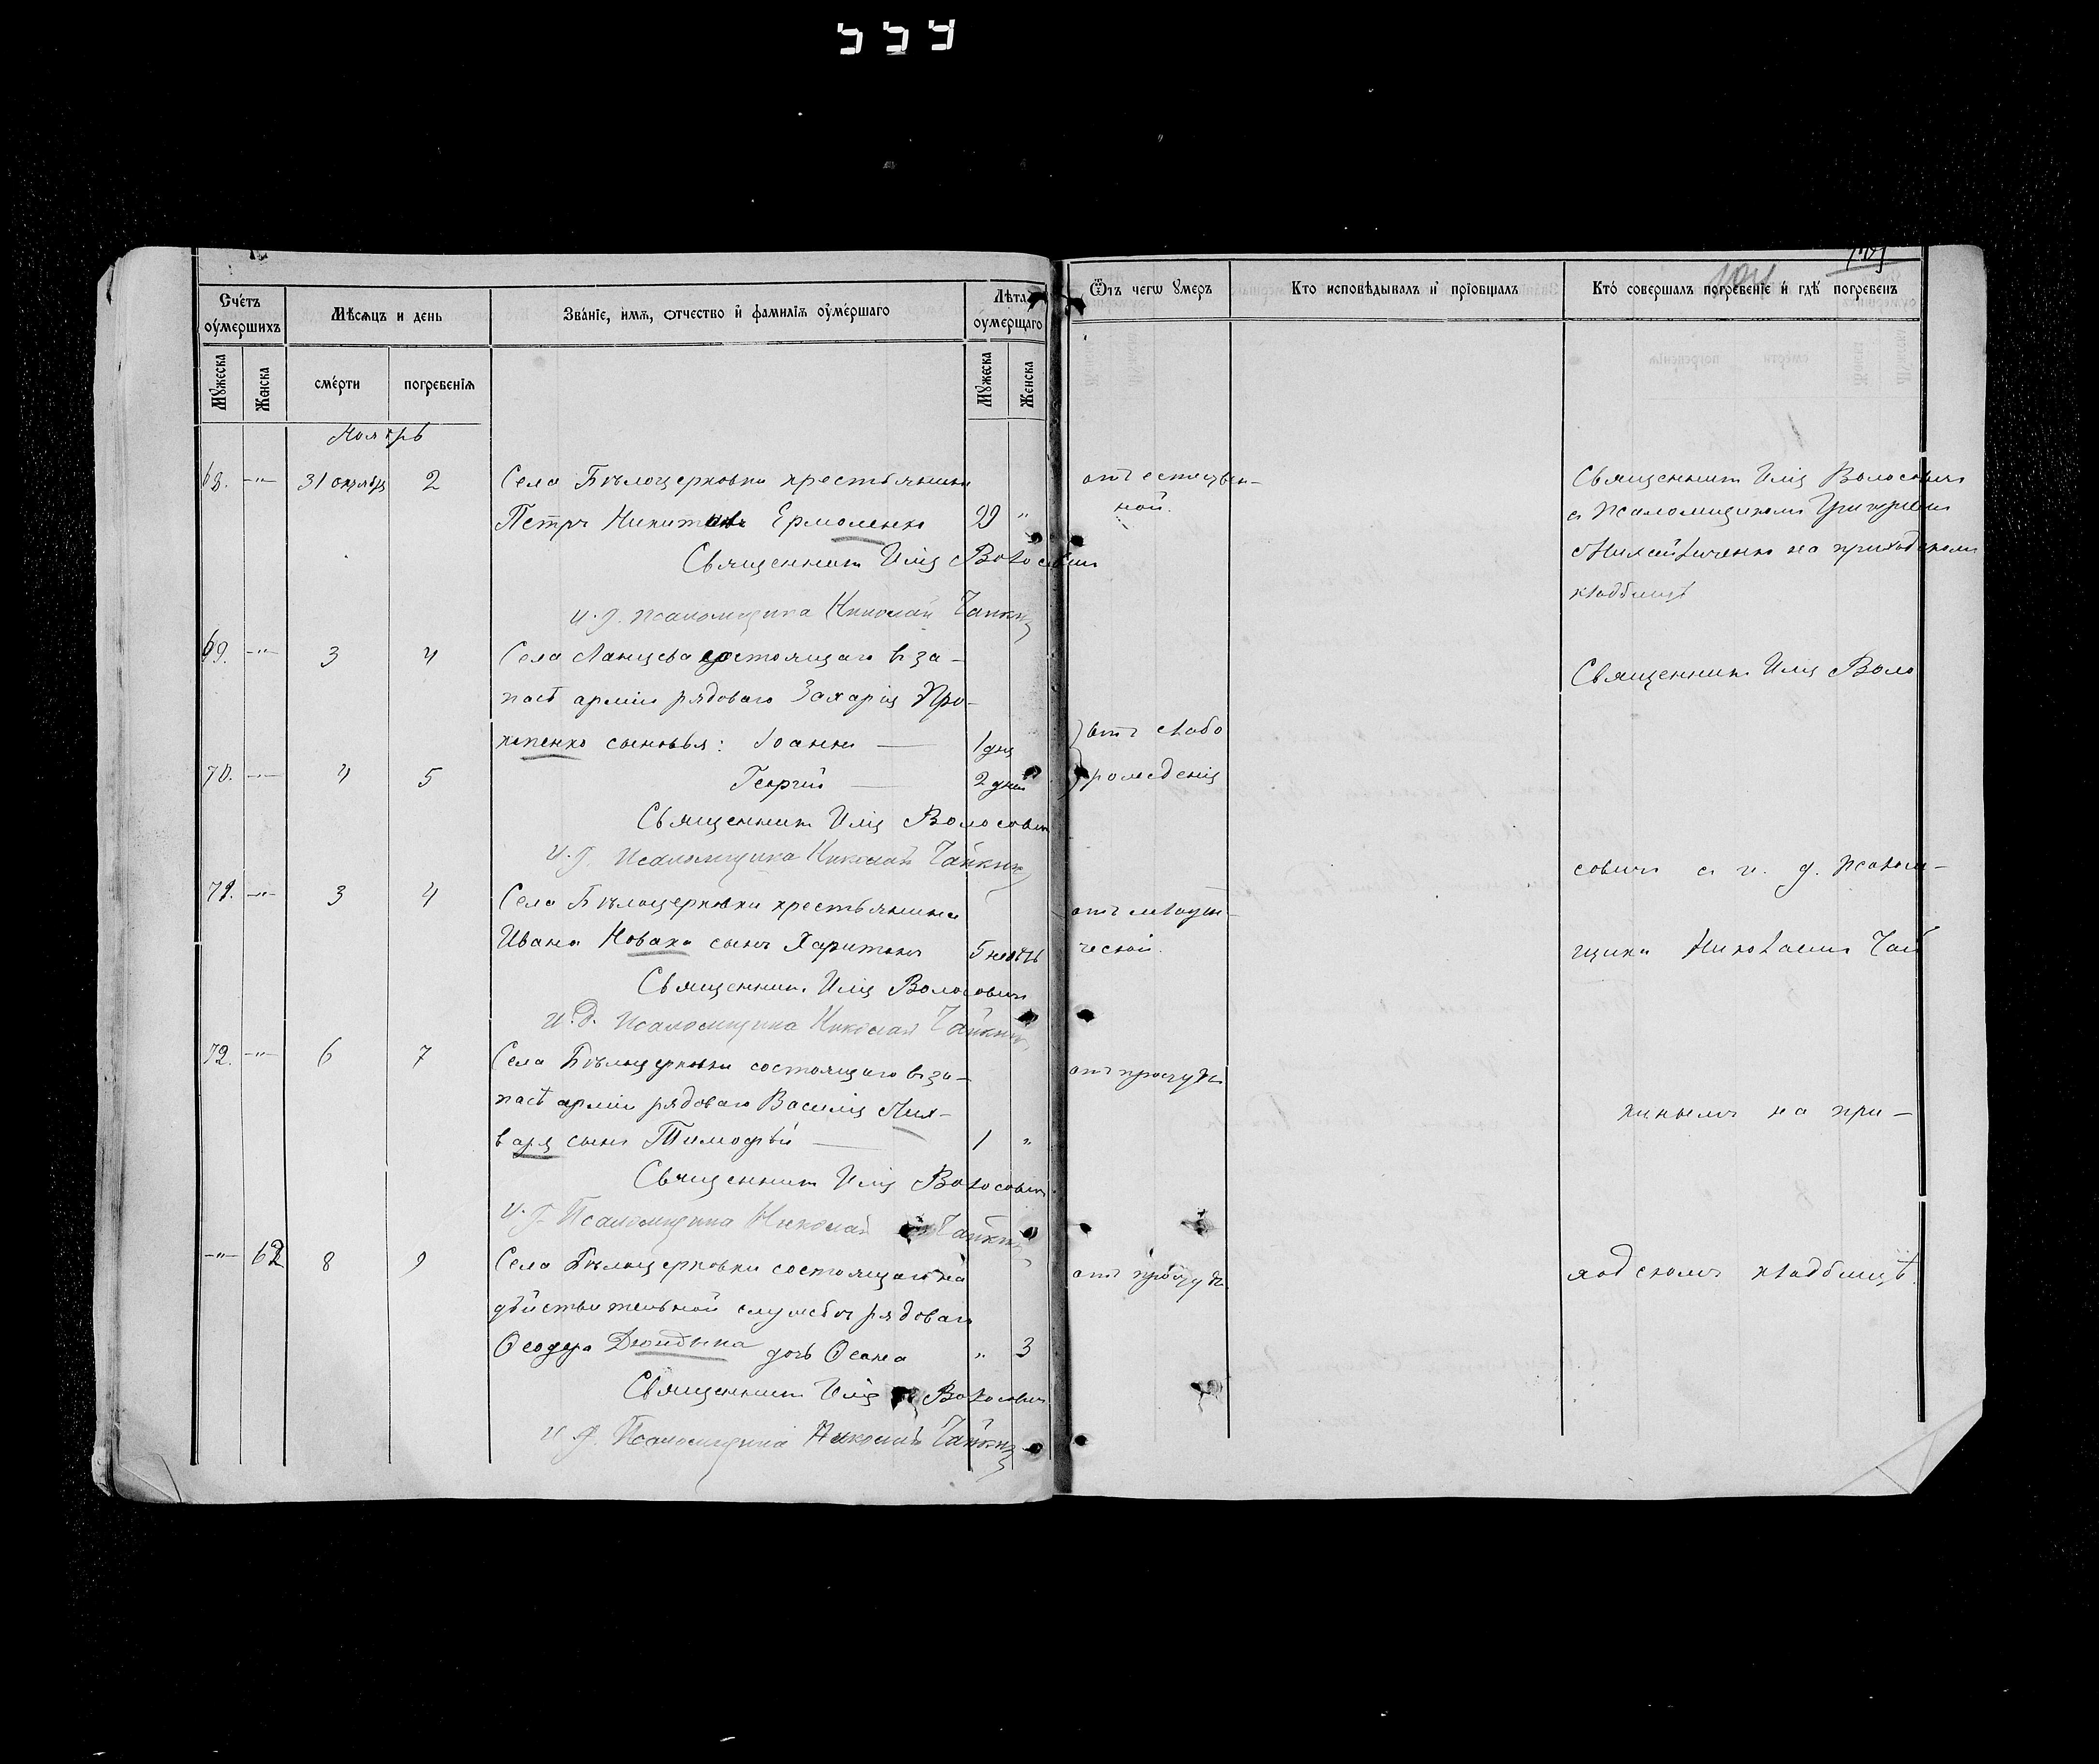 104
Счетъ оумершихъ
Мѣсяцъ и день
Званіе, имя, отчество и фамилія оумершаго
Лѣта оумершаго
Ѿъ чегѡ умеръ
Кто исповѣдывалъ и пріобщалъ
Кто совершалъ погребеніе и гдѣ погребенъ
Мужеска
Женска
смерти
погребенія
Мужеска
Женска
Ноябрь
68. —"— 31 октября 2
Села Бѣлоцерковки крестьянинъ
Петръ Никитинъ Ермоленко 29 "
Священникъ Илія Волосовичъ
и. д. псаломщика Николай Чайкинъ
отъ естествен-
ной.
Священникъ Илія Волосовичъ
съ псаломщикомъ Григоріемъ
на приходскомъ
кладбищѣ
69. —"— 3 4
Села состоящаго въ за-
пасѣ арміи рядоваго Захарія Про-
копенко сыновья: Іоаннъ — 1 дня
70. —"— 4 5
Георгій — 2 дней
Священникъ Илія Волосовичъ
и. д. псаломщика Николай Чайкинъ
отъ слабо
рожденія
Священникъ Илія Воло
71. —"— 3 4
Села Бѣлоцерковки крестьянина
Ивана Новака сынъ Харитонъ 5 недѣль
Священникъ Илія Волосовичъ
и. д. псаломщика Николай Чайкинъ
отъ младен-
ческой.
совичъ съ и. д. псалом-
щика Николаемъ Чай
72. —"— 6 7
Села Бѣлоцерковки состоящаго въ за-
пасѣ арміи рядоваго Василія Лих-
варя сынъ Тимофѣй — 1 "
Священникъ Илія Волосовичъ
и. д. Псаломщика Николай Чайкинъ
отъ простуды
кинымъ на при-
—"— 62 8 9
Села Бѣлоцерковки состоящаго на
дѣйствительной службѣ рядоваго
Ѳеодора дочь 3
Священникъ Илія Волосовичъ
и. д. Псаломщика Николай Чайкинъ
отъ простуды
ходскомъ кладбищѣ.